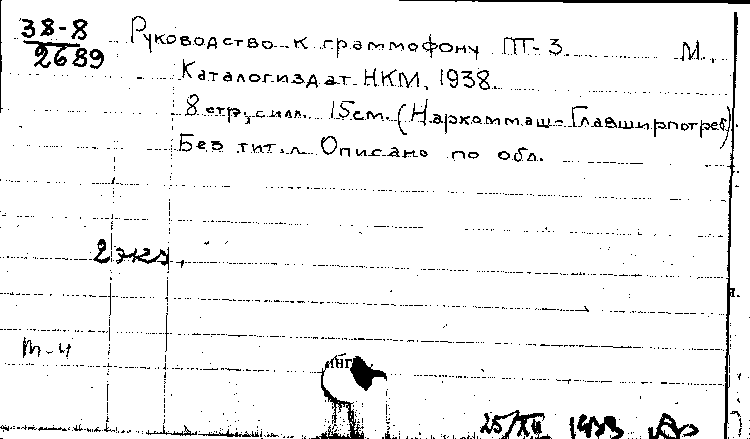 38-8
2689
Руководство к граммофону ПТ-3. М.,
Каталогиздат НКМ, 1938.
8 стр., с илл. 15см. (Наркоммаш-Главширпотреб)
Без тит. л. Описано по обл.
2 экз.
т-4
25/XII 1938